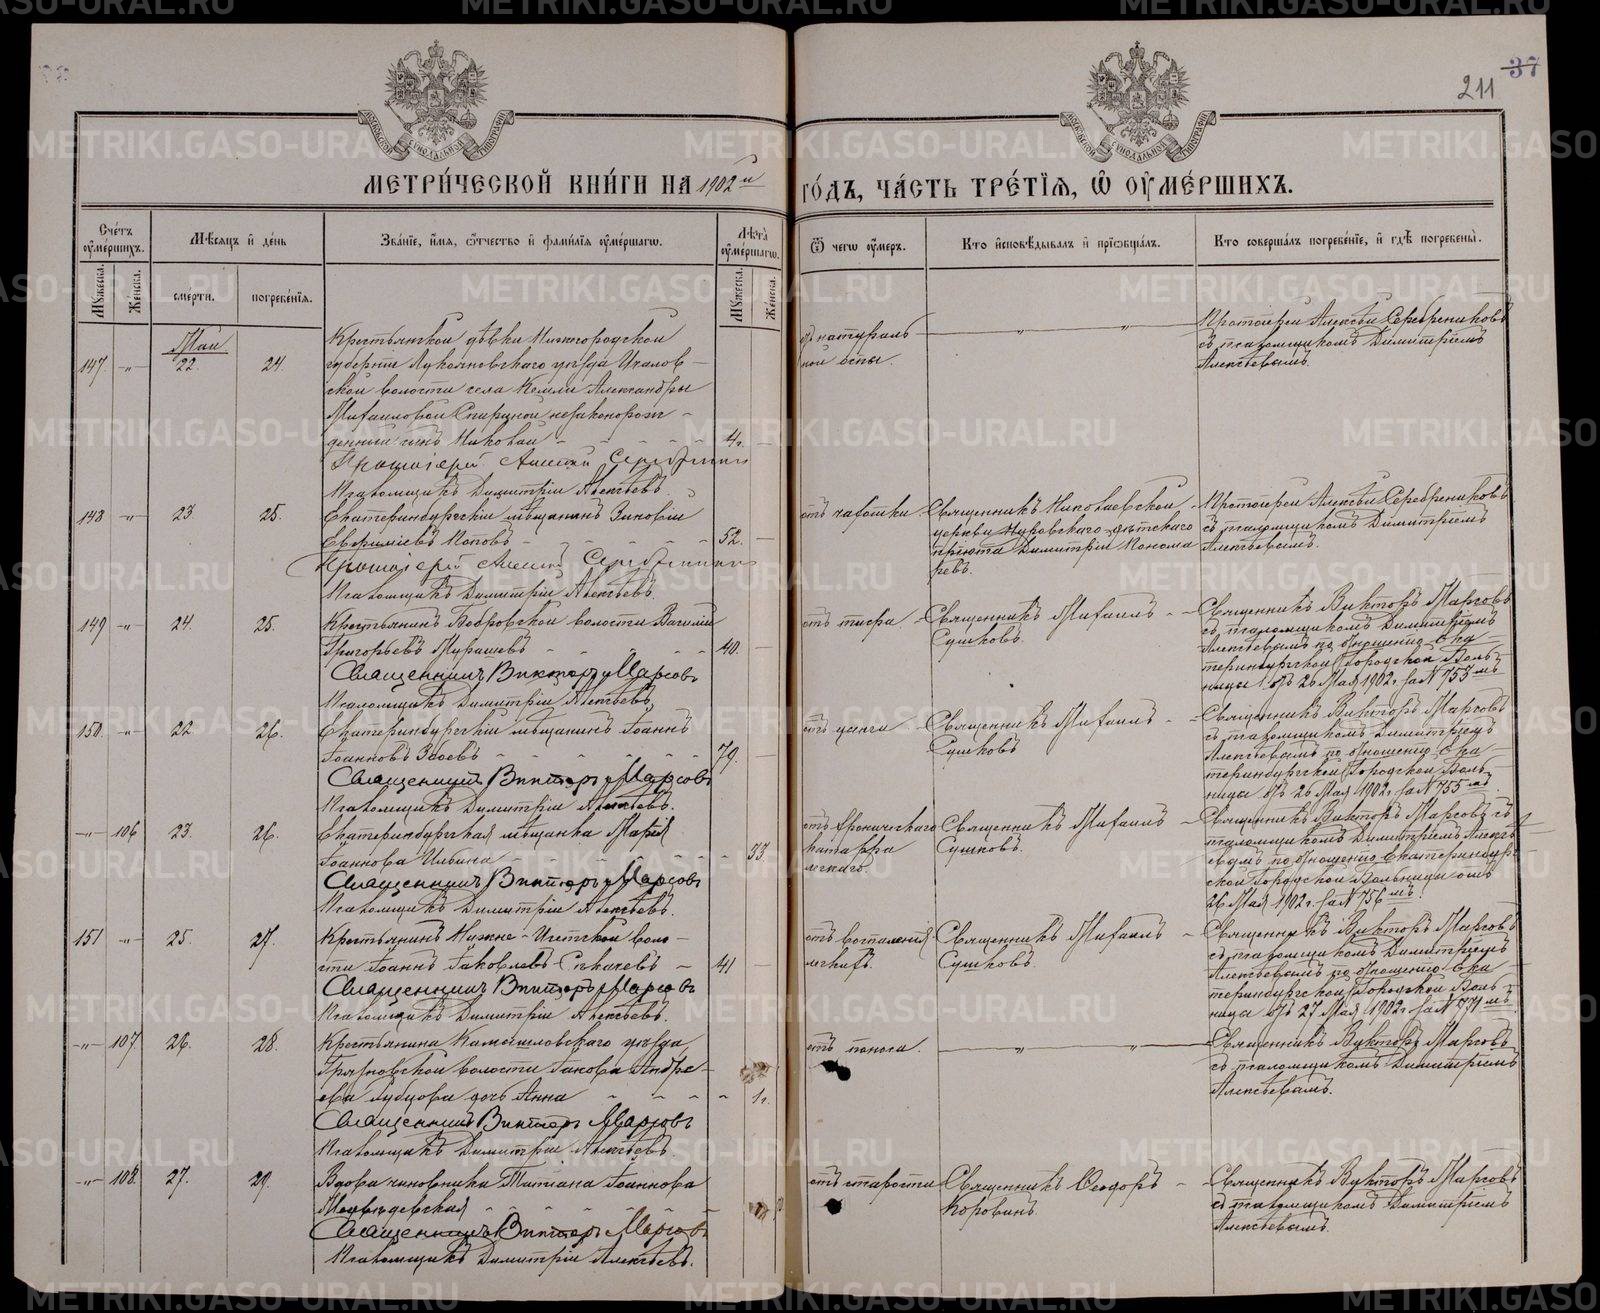 37
211
МОСКОВСКОЙ СѴНОДАЛЬНОЙ ТИПОГРАФІИ
МОСКОВСКОЙ СѴНОДАЛЬНОЙ ТИПОГРАФІИ
МЕТРИ́ЧЕСКОЙ КНИ́ГИ НА 1902й ГО́ДЪ, ЧА́СТЬ ТРЕ́ТІѦ, Ѡ҆ ОУ҆МЕ́РШИХЪ.
Сче́тъ оу҆ме́ршихъ.
Мѣ́сѧцъ и҆ де́нь
Зва́нїе, и҆́мѧ, ѻ҆́тчество и҆ фами́лїѧ оу҆ме́ршагѡ.
Лѣ́та оу҆ме́ршагѡ.
Ѿ чегѡ̀ оу҆́меръ.
Кто̀ и҆сповѣ́дывалъ и҆ прїѡбща́лъ.
Кто̀ соверша́лъ погребе́нїе, и҆ гдѣ̀ погребены̀.
Мꙋ́жеска. Же́нска.
сме́рти. погребе́нїѧ.
Мꙋ́жеска. Же́нска.
Май
147. -"- 22. 24.
Крестьянской дѣвки Нижегородской
губерніи Лукояновскаго уѣзда
ской волости села Кемли Александры
Михаиловой незаконорож-
денный сынъ Николай - 4г. -
Протоіерей Алексій Серебренниковъ
Псаломщикъ Димитрій Алексѣевъ.
отъ натураль-
ной оспы.
-"- -"-
Протоіерей Алексѣй Серебрениковъ
съ псаломщикомъ Димитріемъ
Алексѣевымъ.
148 -"- 23. 25.
Екатеринбургскій мѣщанинъ Зиновій
Евфиміевъ Поповъ - 52. -
Протоіерей Алексій Серебренниковъ
Псаломщикъ Димитрій Алексѣевъ.
отъ чахотки
Священникъ Николаевской
церкви Нуровскаго дѣтскаго
пріюта Димитрій Понома
ревъ.
Протоіерей Алексѣй Серебрениковъ
съ псаломщикомъ Димитріемъ
Алексѣевымъ.
149 -"- 24. 25.
Крестьянинъ Бобровской волости Василій
Григорьевъ Мурашевъ - 40. -
Священникъ Викторъ Марсовъ
Псаломщикъ Димитрій Алексѣевъ
отъ тифа
Священникъ Михаилъ
Сушковъ.
Священникъ Викторъ Марсовъ
съ псаломщикомъ Димитріемъ
Алексѣевымъ по отношенію Ека-
теринбургской Городской Боль-
ницы отъ 26 Мая 1902г. за N 753мъ
150 -"- 22 26.
Екатеринбургскій мѣщанинъ Іоаннъ
Іоанновъ - 79. -
Священникъ Викторъ Марсовъ
Псаломщикъ Димитрій Алексѣевъ.
отъ цынги
Священникъ Михаилъ
Сушковъ
Священникъ Викторъ Марсовъ
съ псаломщикомъ Димитріемъ
Алексѣевымъ по отношенію Ека-
теринбургской Городской Боль-
ницы отъ 26 Мая 1902г. за N 755мъ
-"- 106 23. 26.
Екатеринбургская мѣщанка Марія
Іоаннова Ильина - 33.
Священникъ Викторъ Марсовъ
Псаломщикъ Димитрій Алексѣевъ.
отъ хроническаго
катарра
легкаго.
Священникъ Михаилъ
Сушковъ.
Священникъ Викторъ Марсовъ съ
псаломщикомъ Димитріемъ Алексѣ-
евымъ по отношенію Екатеринбург-
ской Городской Больницы отъ
26 Мая 1902г. за N 756мъ.
151 -"- 25. 27.
Крестьянинъ Нижне-Исетской воло-
сти Іоаннъ Іаковлевъ - 41 -
Священникъ Викторъ Марсовъ
Псаломщикъ Димитрій Алексѣевъ.
отъ воспаленія
легкихъ.
Священникъ Михаилъ
Сушковъ.
Священникъ Викторъ Марсовъ
съ псаломщикомъ Димитріемъ
Алексѣевымъ по отношенію Ека
теринбургской Городской Боль
ницы отъ 27 Мая 1902г. за N 771мъ
-"- 107. 26. 28.
Крестьянина Камышловскаго уѣзда
Грязновской волости Іакова Андре-
ева Зубцова дочь Анна - 1г.
Священникъ Викторъ Марсовъ
Псаломщикъ Димитрій Алексѣевъ.
отъ поноса.
-"- -"-
Священникъ Викторъ Марсовъ
съ псаломщикомъ Димитріемъ
Алексѣевымъ.
-"- 108. 27. 29.
Вдова чиновника Татіана Іоаннова
Медвѣдевская
Священникъ Викторъ Марсовъ
Псаломщикъ Димитрій Алексѣевъ.
отъ старости
Священникъ Ѳеодоръ
Коровинъ.
Священникъ Викторъ Марсовъ
съ псаломщикомъ Димитріемъ
Алексѣевымъ.
METRIKI.GASO-URAL.RU